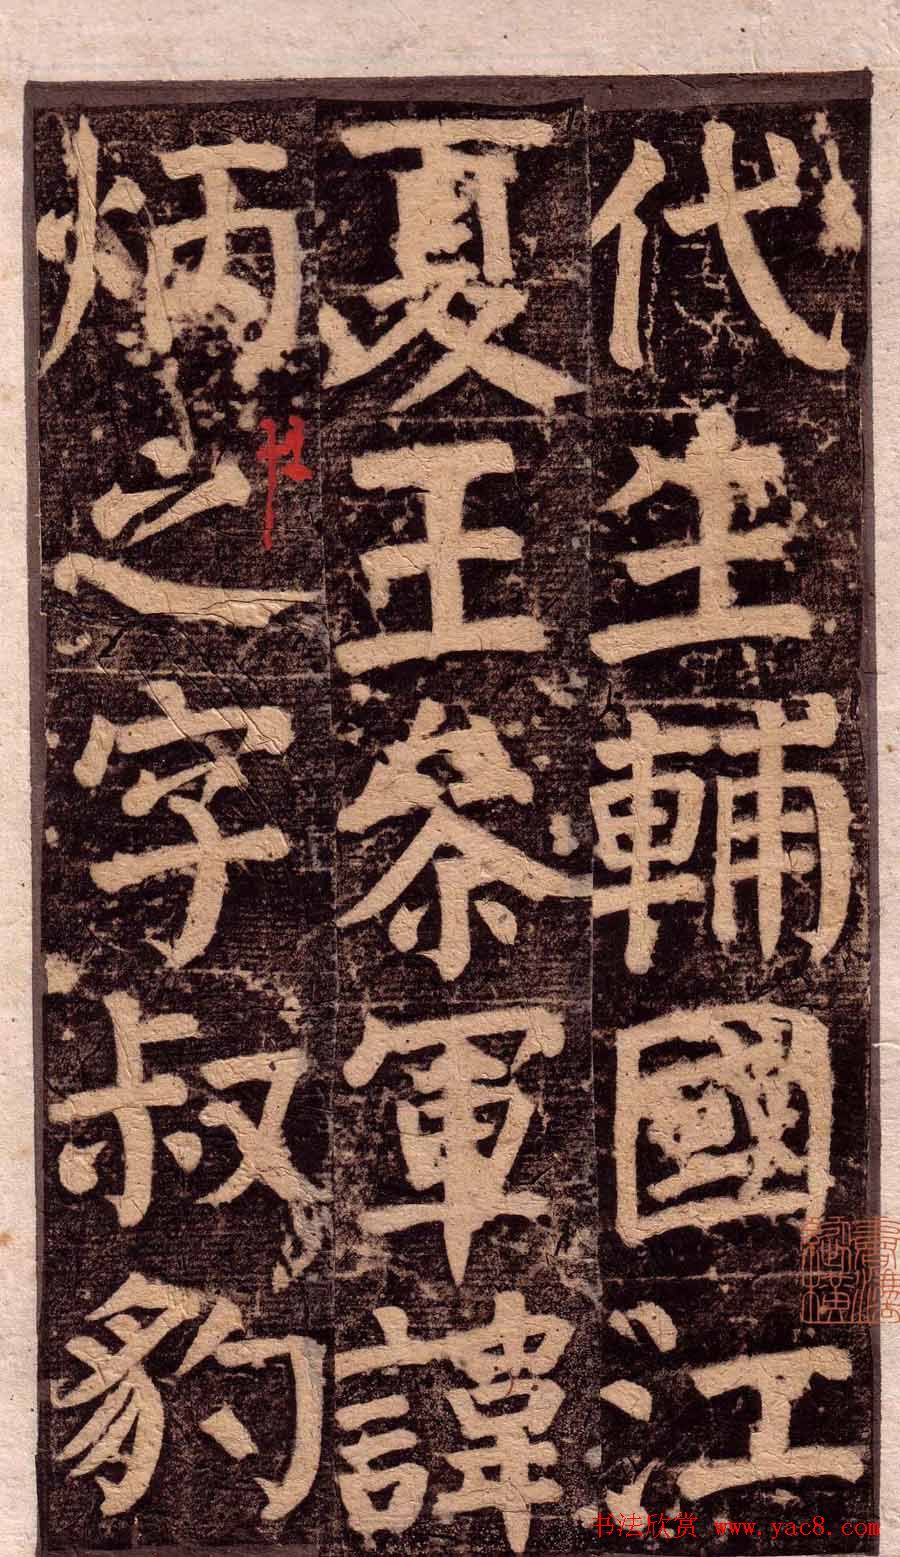 代生輔國江
夏王叅軍諱
炳之字叔豹
书法欣赏 www.yac8.com